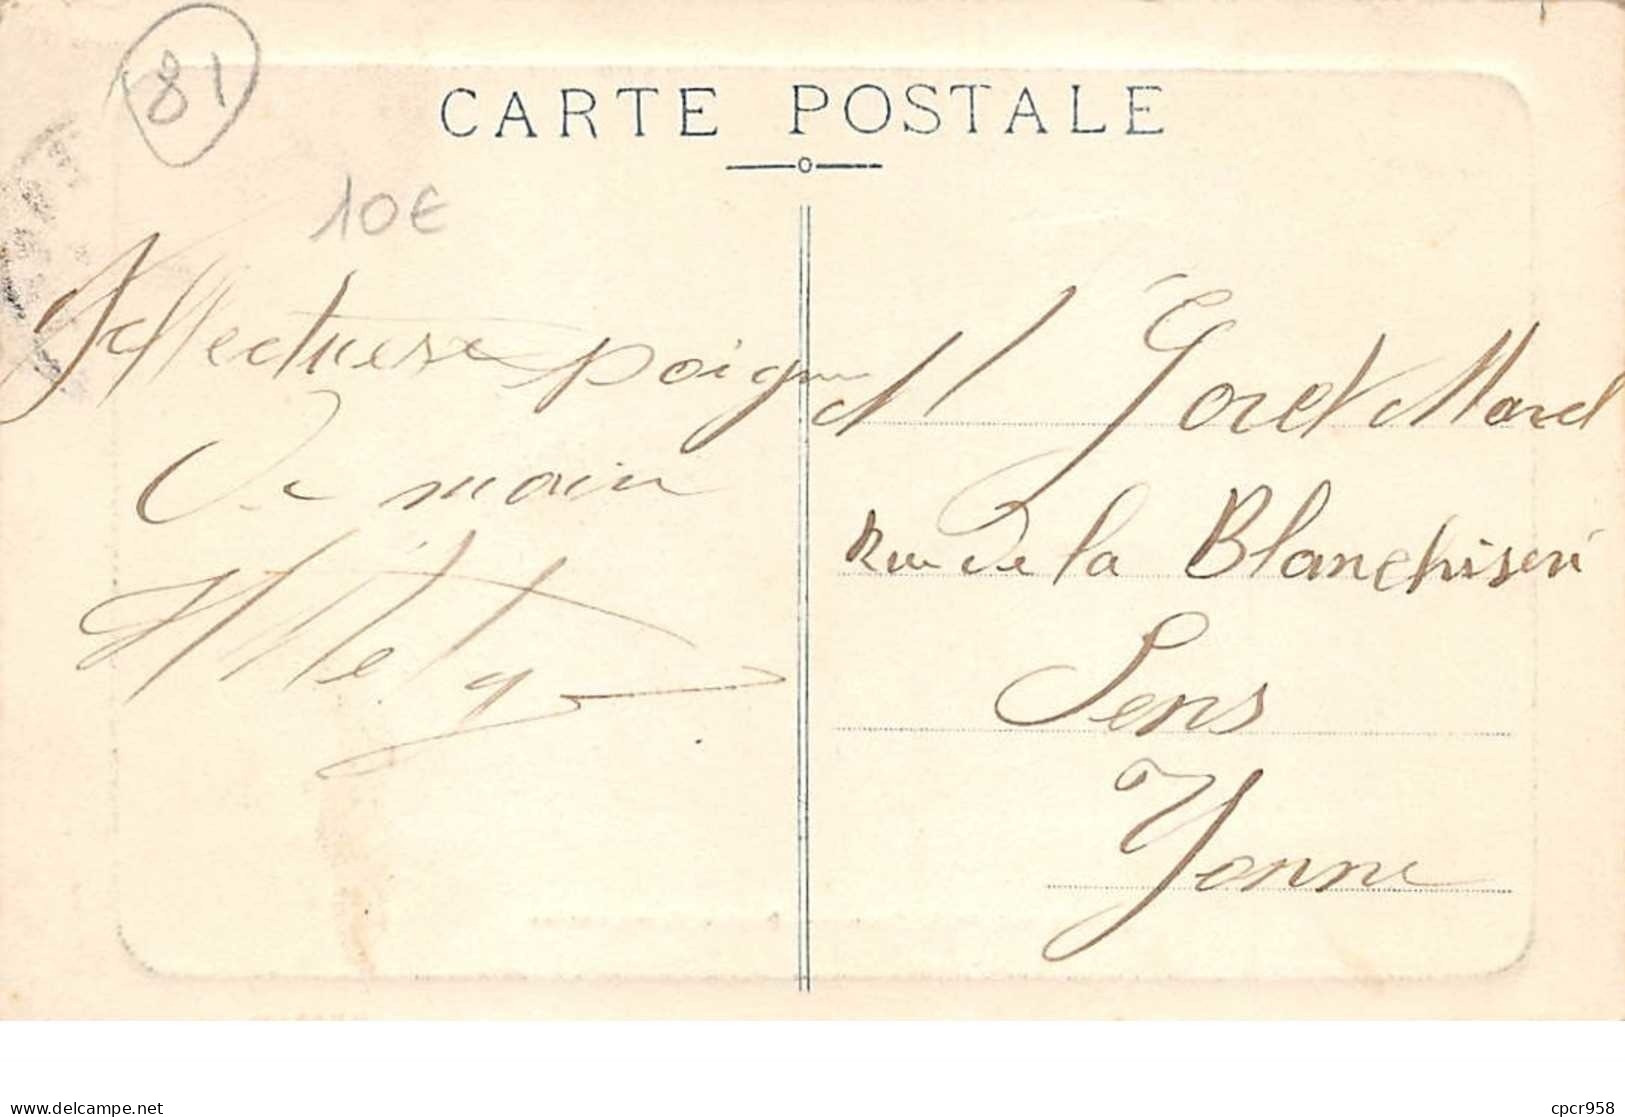 81
CARTE POSTALE
10€
Affectueuse poignée
De main
M Goret Marcel
Rue De la Blanchiserie
Sens
Yonne
delcampe.net
cpcr958